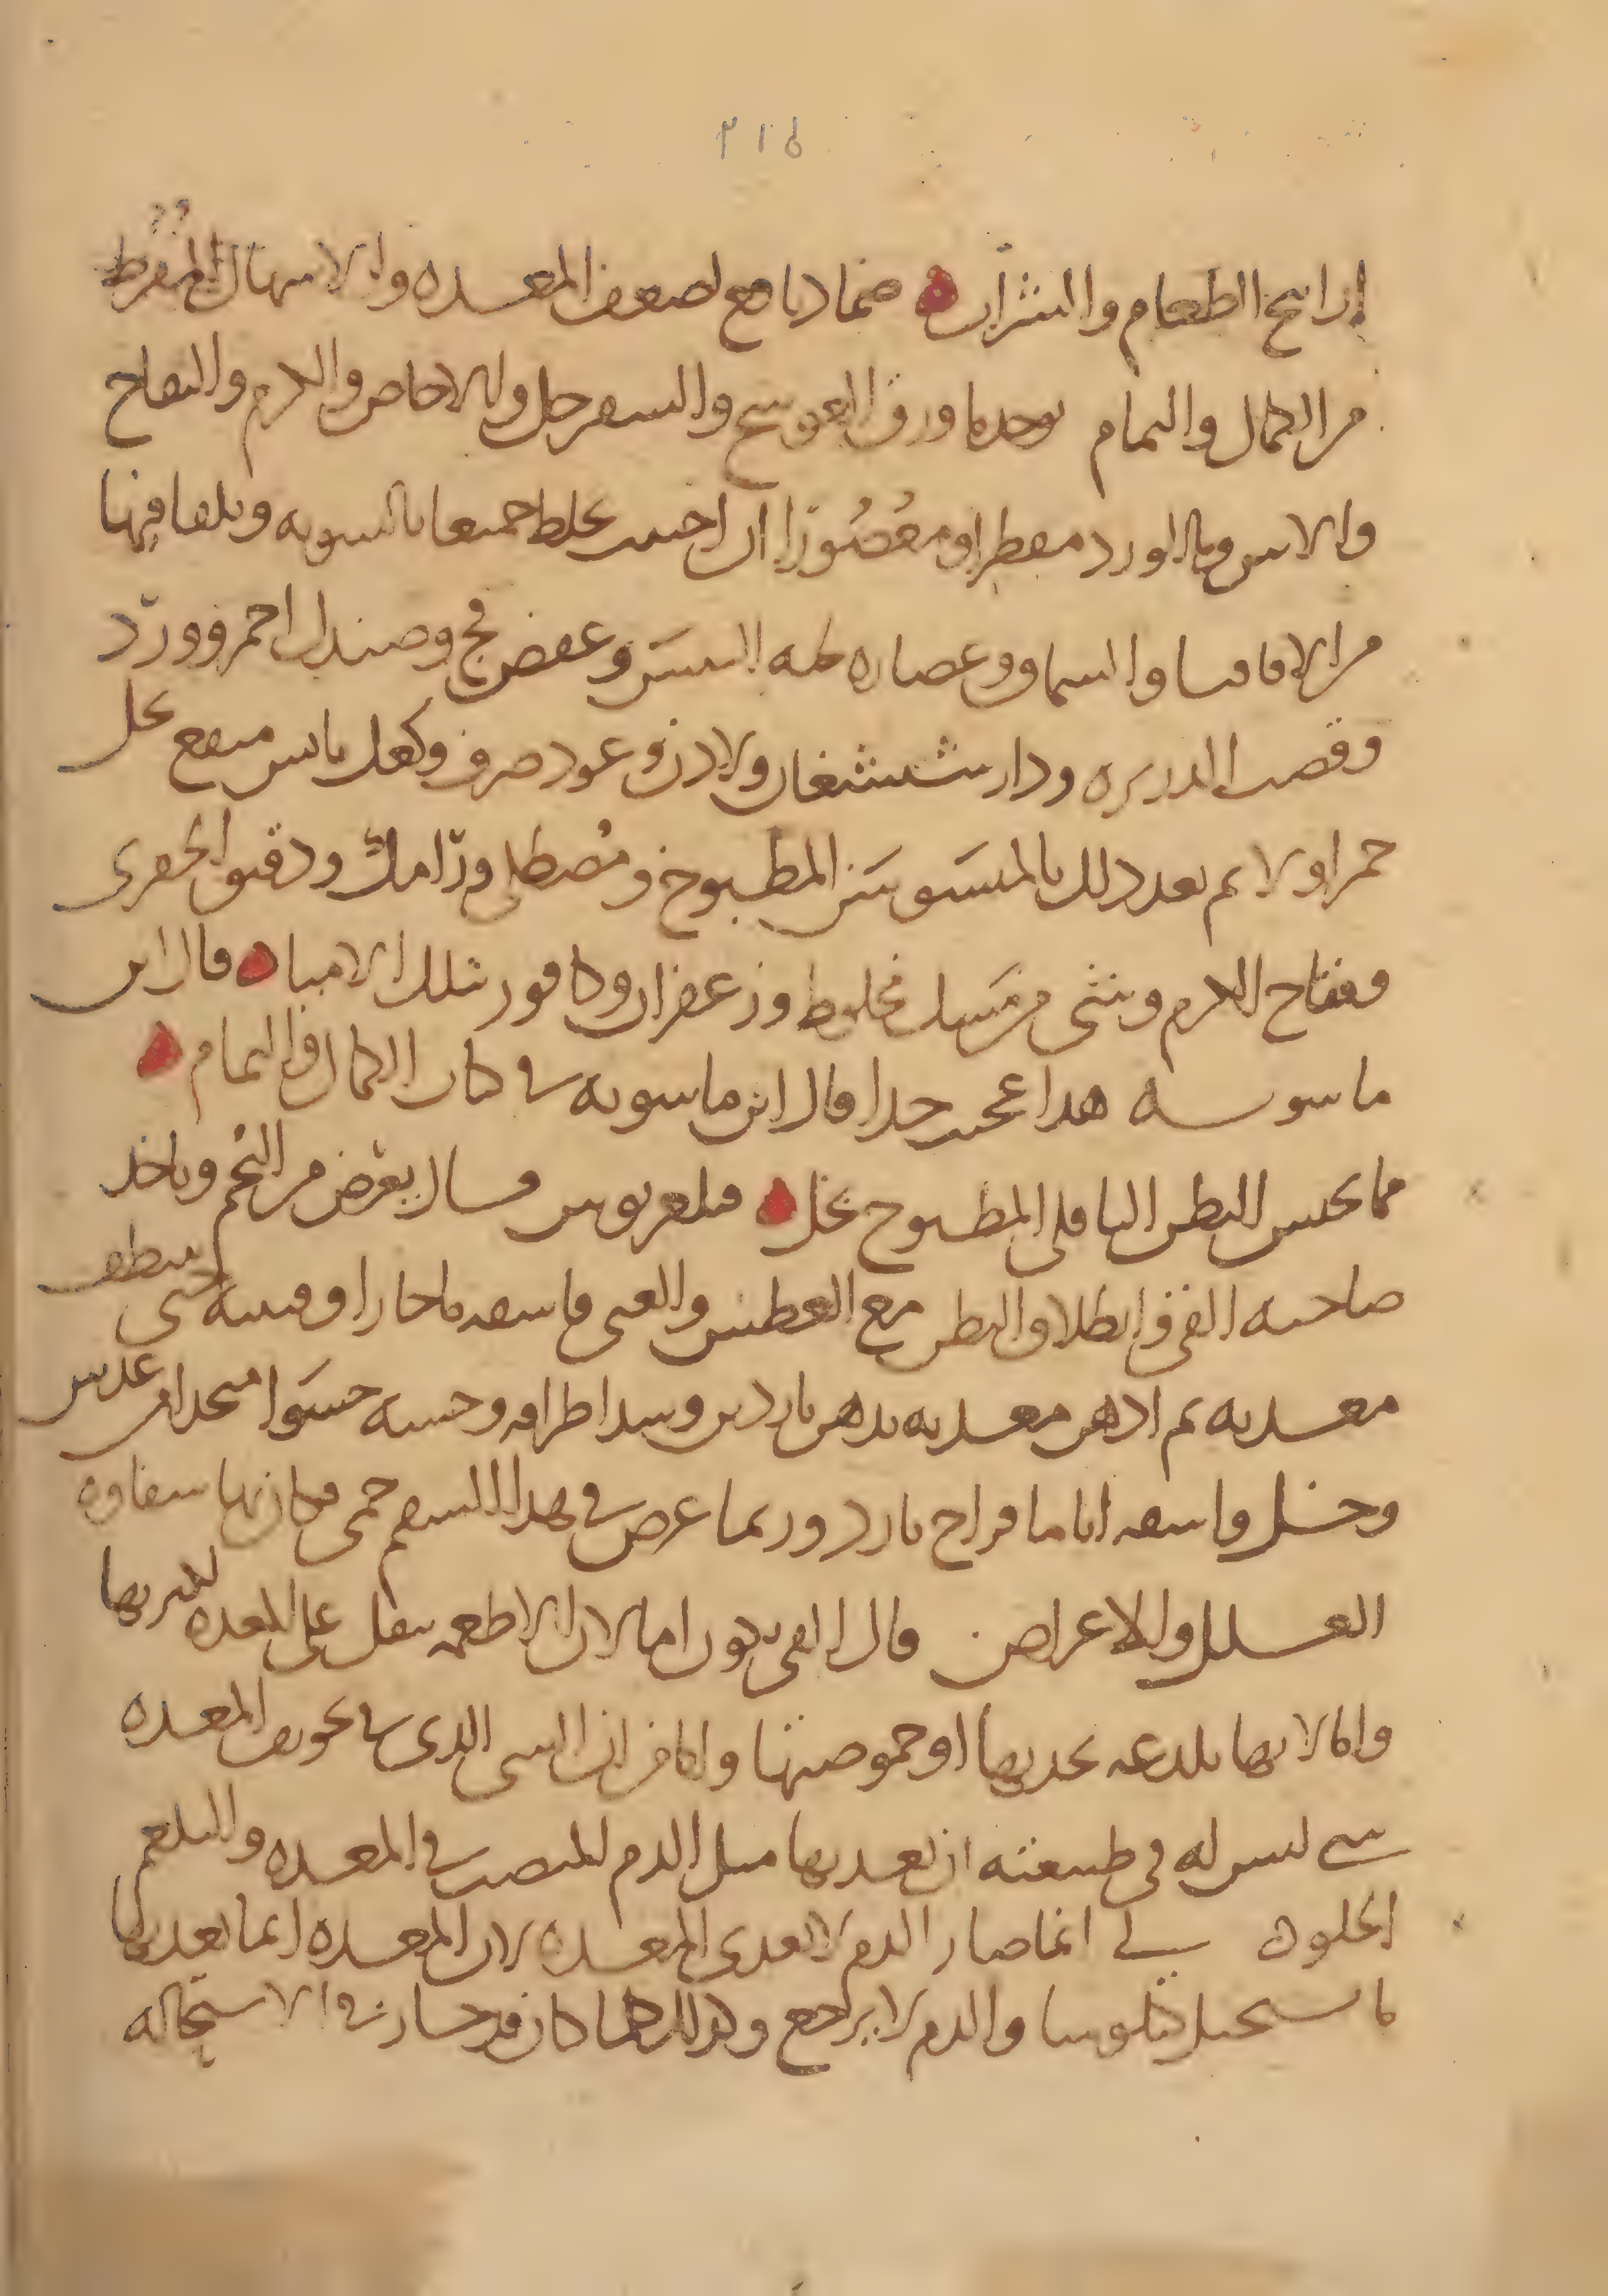 ٢١٥
ارايح الطعام والشراب ضماد نافع لضعف المعده والاسهال المفرط
من الكمال والتمام يوخد ما ورق العوسج والسفرجل والاجاص والكرم والتفاح
والاس وما الورد مقطرا ومعصورا ان احببت يخلط جميعا بالسويه ويلقا فيها
من الاقاقيا والسماق وعصاره لحيه التيس وعفص فج وصندل احمر وورد
وقصب الدريره ودارششغان ولادن وعود صرف وكعك يابس منقع بخل
خمر اولا ثم بعد دلك بالميسوسن المطبوخ ومصطلى ورامك ودقيق الجفرى
وفقاح الكرم وشى من مسك مخلوط وزعفران وكافور بتلك الامياه قال ابن
ماسويه هدا عجيب جدا قال ابن ماسويه في كتاب الكمال والتمام
مما يحبس البطن الباقلى المطبوخ بخل فليغريوس قال يعرض من التخم وياخد
صاحبه القى وانطلاق البطن مع العطش والغى فاسقه ما حارا وقيه حتى ينظف
معدته ثم ادهن معدته بدهن ناردين وشد اطرافه وحسه حسوا متخدا من عدس
وخل واسقه اياما قراح بارد وربما عرض في هدا السقم حمى مكانها سقاوه
العلل والاعراض قال القى يكون اما لان الاطعمه تثقل على المعده لكثرتها
واما لانها تلدعه بحدتها او حموضتها واما من ان الشى الدى في تجويف المعده
شى ليس له في طبيعته ان يعديها مثل الدم المنصب في المعده والبلغم
الحلو لى انما صار الدم لا يعدى المعده لان المعده انما يعديها
ما يستحيل كيلوسا والدم لا يرجع وكدلك كلما كان قد صار في الاستحاله